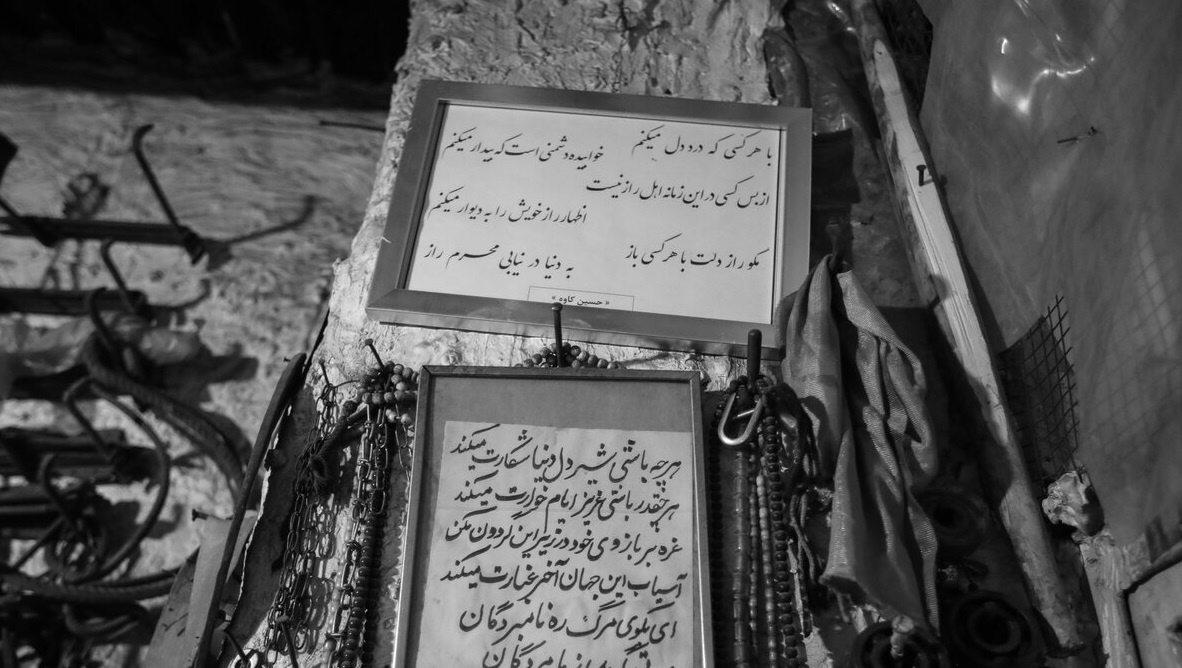 با هر کسی که درد دل میکنم خوابیده دشمنی است که بیدار میکنم
از بس کسی در این زمانه اهل راز نیست
اظهار راز خویش را به دیوار میکنم
مگو راز دلت با هر کسی باز به دنیا در نیابی محرم راز
« حسین کاوه »
هرچه باشی شیر دل دنیا شکارت میکند
هرچقدر باشی عزیز ایام خوارت میکند
غره بر بازوی خود در زیر این گردون مکن
آسیاب این جهان آخر غبارت میکند
ای بکوی مرگ ره نامبردگان